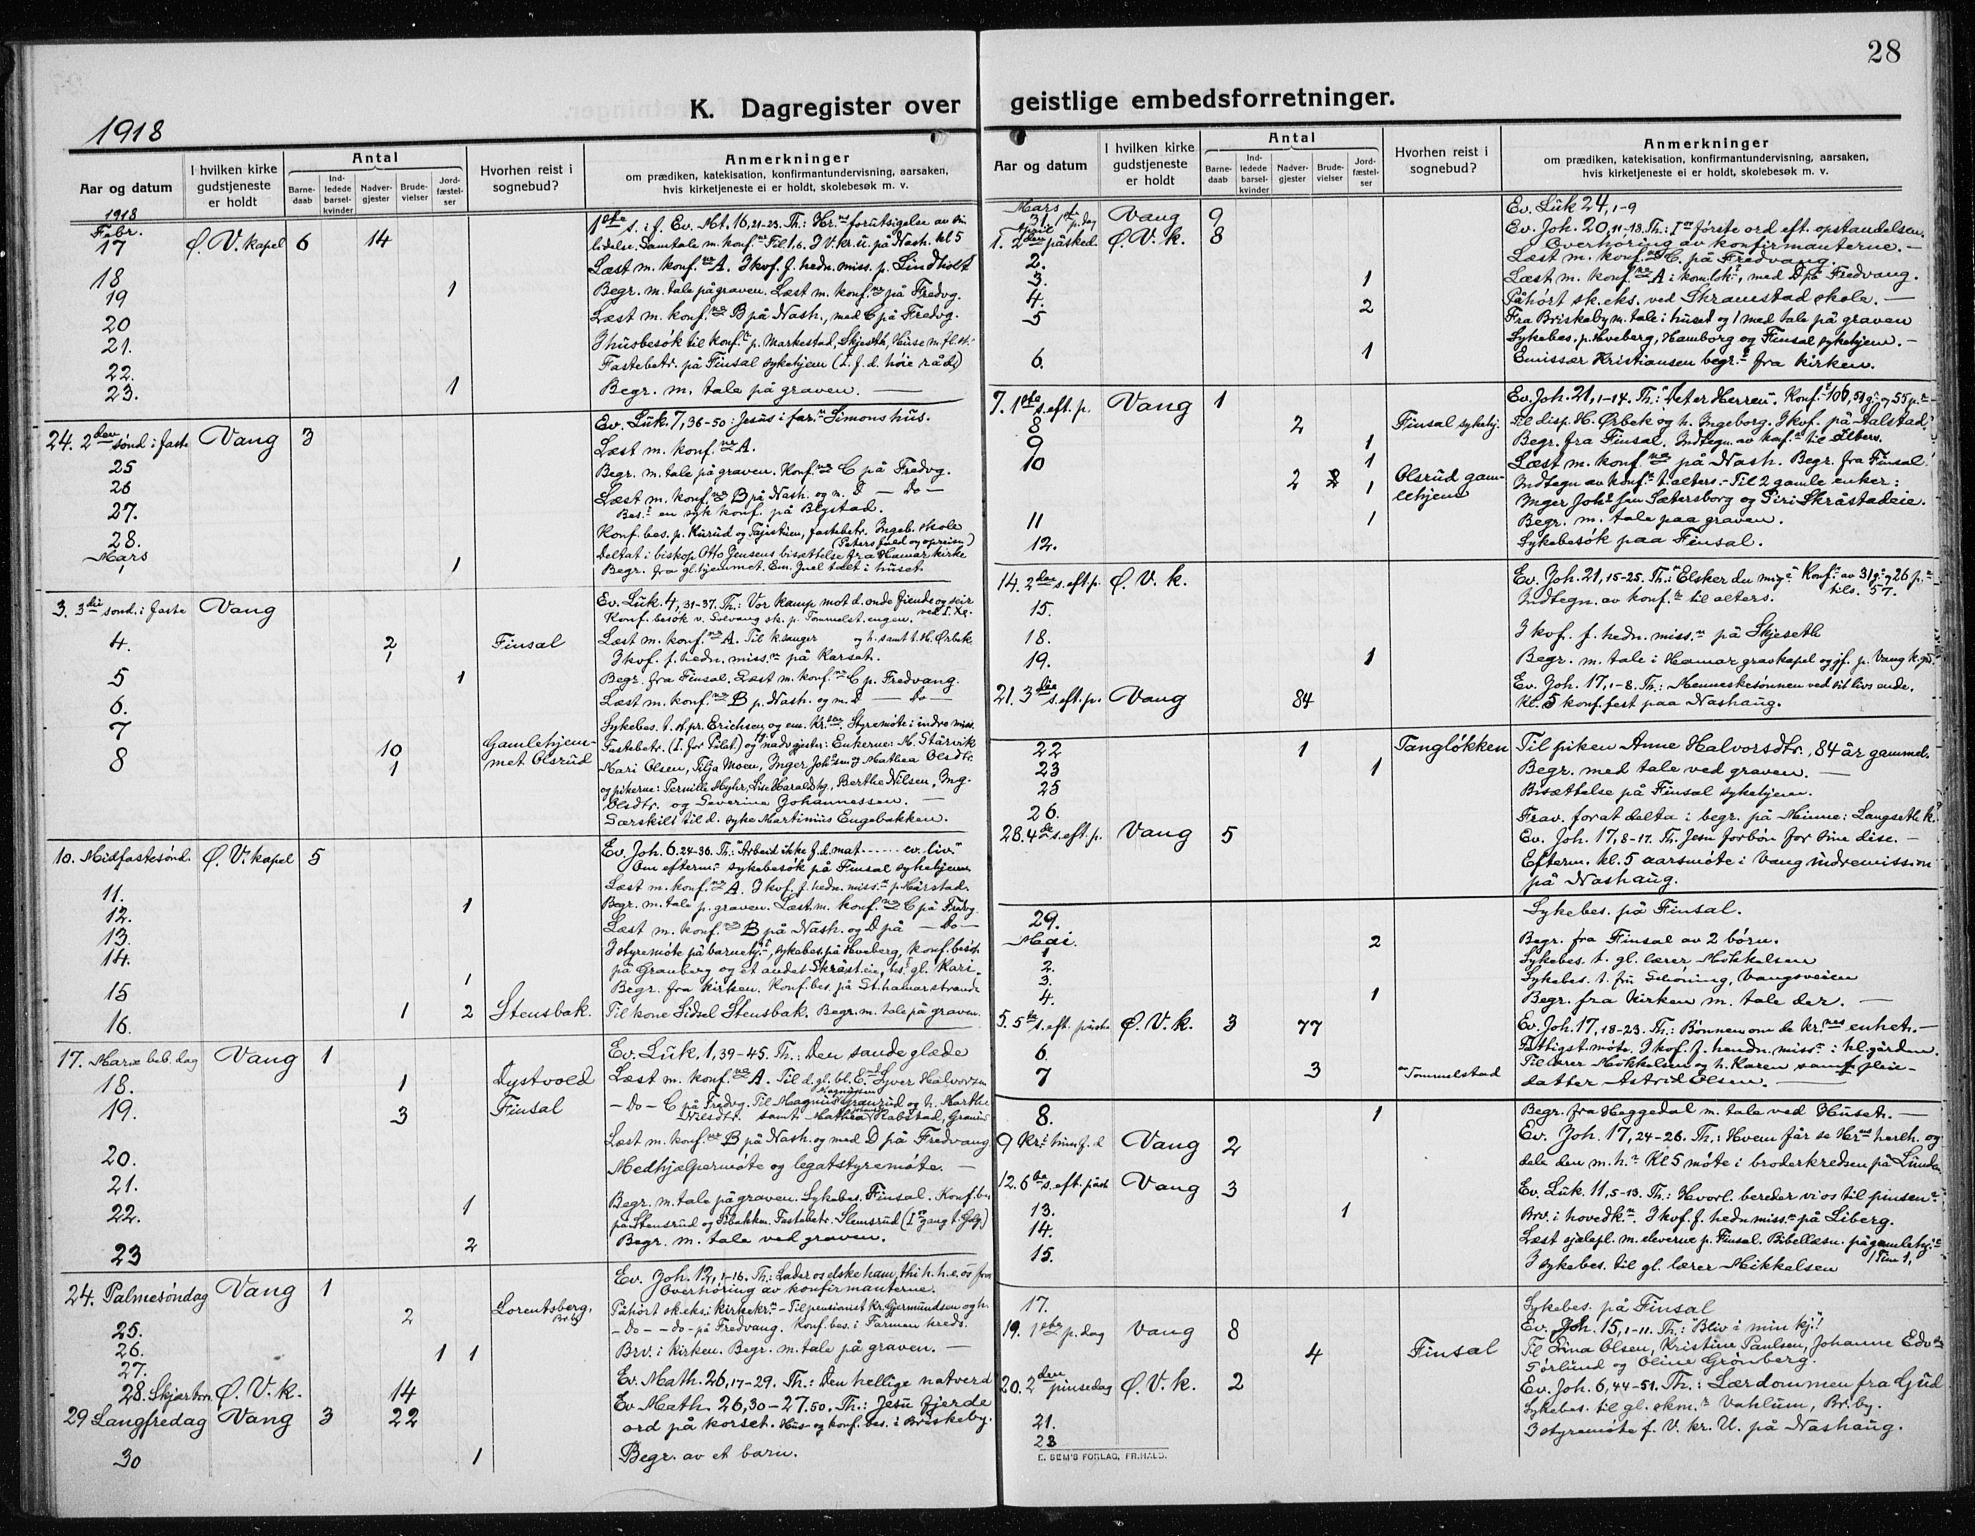 28
K. Dagregister over geistlige embedsforretninger.
1918
Aar og datum
I hvilken kirke gudstjeneste er holdt
Antal
Barnedaab
Indledede barselkvinder
Nadvergjester
Brudevielser
Jordfæstelser
Hvorhen reist i sognebud?
Anmerkninger
om prædiken, katekisation, konfirmantundervisning, aarsaken,
hvis kirketjeneste ei er holdt, skolebesøk m. v.
1918
Febr.
17 Ø. V. kapel 6 14 1ste s. i f. Ev. Mt. 16, 21-23. Th: Hr.ns forutsigelse av sin
lidelse. Samtale m. konf.ne Til 1.6. I V.kr.u. på Nash. kl 5
18 Læst m. konf.ne A. I kvf. f. hedn. miss. p. Lindholt
19 1 Begr. m. tale på graven. Læst m. konf.ne på Fredvg.
20 Læst m. konf.ne B på Nash., med C på Fredvg.
21. I husbesök til konf. p. Markestad, Skjeseth, Huse m. fl. st.
22. Fastebetr. på Finsal sykehjem (I. f. d. høie råd)
23. 1 Begr. m. tale på graven.
24. 2den sønd. i faste Vang 3 Ev. Luk. 7, 36-50: Jesus i far.ns Simons hus.
25 Læst m. konf.ne A.
26 Begr. m. tale på graven. Konf.ne C på Fredvg.
27. Læst m. konf.ne B på Nash. og m. D - Do -
Bes. en syk konf. på Bystad.
28. Konf. bes. p. Kurud og fastebetr. Ingeb. skole
(Peters fald og opreisn.)
Mars
Deltat i biskop Otto Jensens bisættelse fra Hamar kirke
1 1 Begr. fra gl.hjemmet. Em. Juel talt i huset.
3. 3die sønd. i faste Vang Ev. Luk. 4, 31-37. Th.: Vor kamp mot d. onde fiende og seir
ved I. Xt.
Konf. besök v. Solvang sk. p. Tommelst. engen.
4. 2 Finsal Læst m. konf.ne A. Til k.sanger og h. samt t. H. Ørbek
1 I kvf. f. hedn. miss.n på Karset.
5 1 Begr. fra Finsal. Læst m. konf.ne C p. Fredvang.
6. Læst m. konf.ne B p. Nash. og m. D - Do -
7 Sykebes. t. Erichsen og em. Styremöte i indre miss.
8 10 Gamlehjemmet Olsrud Fastebetr. (I. for Pilat.) og nadvgjester: Enkerne: M. Starvik
1 Mari Olsen, Tilja Moen, Inger Joh.sen og Mathea Olsdtr.
og pikerne: Pernille Myhr, Lise Haraldhg, Berthe Nilsen, Ing.
Olsdtr. og Severine Johannessen.
Særskilt til d. syke Martinius Engebakken.
10. Midfastesønd. Ø. V. kapel 5 Ev. Joh. 6. 24-36. Th: "Arbeid ikke f. d. mat ...... ev. liv."
Om efterm. sykebesök på Finsal sykehjem
11. Læst m. konf.ne A. I kvf. f. hedn. miss.n p. Hårstad.
12. 1 Begr. m. tale p. graven. Læst m. konf.ne C på Fredvg.
13. Læst m. konf.ne B på Nash. og D på - Do -
14. I styremöte på barnehj., sykebes. på Hveberg, konf. besök
på Granberg og et andet Skråsteie, bes. gl. Kari.
15 1 Begr. fra kirken. Konf. bes. på St. hamarstrande
16. 1 2 Stensbak. Til kone Sidsel Stensbak. Begr. m. tale på graven.
17. Mariæ beb. dag Vang 1 Ev. Luk. 1, 39-45. Th.: Den sande glæde
18. 1 Dystvold Læst m. konf.ne A. Til d. gl. bl. E. Syver Halvorsen
19. 3 Finsal - Do - C på Fredvg. Til Magnus Granrud og h. Marthe
Nilsdtr. samt Mathea Rabstad,
20. Læst m. konf.ne B på Nash. og med D på Fredvang
21. Medhjælpermöte og legatstyremöte.
22. 1 Begr. m. tale på graven. Sykebes. Finsal. Konf. bes.
på Stensrud og Fastebetr. Slemsrud (I. gang t. Golg.)
23 2 Begr. m. tale ved graven.
24. Palmesøndag Vang 1 Ev. Joh. 12, 1-16. Th.: Lader os elske ham, thi h. h. e. os först
Overhøring av konfirmanterne.
25. 2 Lorentsberg, Br.by Påhört sk.eks. i kirkekr. - Til pensionist kr. Gjermundsen og h.
26. - Do - - do - på Fredvang. Konf. bes. i Farmen kreds.
27. 1 1 Brv. i kirken. Begr. m. tale på graven.
28. Skjærtorsd. Ø. V. k. 14 Ev. Math. 26, 17-29. Th.: Den hellige natverd
29 Langfredag Vang 3 22 Ev Math. 26, 30 - 27. 50. Th.: Jesu fjerde
ord på korset. Hus- og konf. bes. i Briskeby.
30 1 Begr. av et barn.
Aar og datum
I hvilken kirke gudstjeneste er holdt
Antal
Barnedaab
Indledede barselkvinder
Nadvergjester
Brudevielser
Jordfæstelser
Hvorhen reist i sognebud?
Anmerkninger
om prædiken, katekisation, konfirmantundervisning, aarsaken,
hvis kirketjeneste ei er holdt, skolebesøk m. v.
Mars
31. 1ste p.dag Vang 9 Ev. Luk 24, 1-9
April
1. 2den påsked. Ø. V. k. 8 Ev. Joh. 20, 11-18. Th: I.s første ord eft. opstandelsen.
Overhøring av konfirmanterne. -
2. Læst m. konf.ne C. på Fredvang.
3. 1 Læst m. konf.ne A i kom.lok., med D på Fredvang.
4. Påhört sk. eks. ved Skramstad skole. -
5 2 Fra Briskeby m. tale i huset og 1 med tale på graven
Sykebes. p. Hveberg, Hamborg og Finsal sykehjem. -
6. 1 Emissær Kristiansen begr. fra kirken.
7. 1ste s. eft. p. Vang 1 Ev. Joh. 21, 1-14. Th: "Det er Herren". Konf. 106, 51 g. og 55 p.
8 2 Finsal sykehj. Til disp. H. Ørbek og h. Ingeborg. I kvf. på Aalstad
9 1 Begr. fra Finsal. Indtegn. av konf. til alters.
10 1 Læst m. konf.ne på Nash. Begr. fra Finsal.
2 1 Olsrud gamlehjem Indtegn av konf. t. alters. - Til 2 gamle enker:
Inger Joh.sen Sætersborg og Siri Skråstadeie.
11 1 Begr. m. tale paa graven.
12. Sykebesök paa Finsal.
14. 2den s. eft. p. Ø. V. k. Ev. Joh. 21, 15-25. Th.: "Elsker du mig" Konf. av 31 g. og 26 p.
tils. 57.
15. Indtegn. av konf. til alters.
18. I kvf. f. hedn. miss.n på Skjeseth
19. 1 Begr. m. tale i Hamar gravkapel og jf. p. Vang k.gd.
21. 3die s. eft. p. Vang 84 Ev. Joh. 17, 1-8. Th.: Menneskesønnen ved sit livs ende.
Kl. 5 konf.fest paa Nashaug.
22 1 Tangløkken Til piken Anne Halvorsdtr., 84 år gammel.
23 1 Begr. med tale ved graven. -
25 Bisættelse på Finsal sykehjem
26. Frav. for at delta i begr. på Minne: Langseth k.
28. 4de s. eft. p. Vang 5 Ev. Joh. 17, 8-17. Th. Jesu forbøn for sine disc. -
Efterm. kl. 5 aarsmöte i Vang indremission
på Nashaug.
29. Sykebes. på Finsal.
Mai.
1 2 Begr. fra Finsal av 2 börn.
2. Sykebes. t. gl. lærer Mikkelsen
3. Sykebes. t. fru Schøning, Vangsveien
4. 1 Begr. fra kirken m. tale der. -
5. 5te s. eft. påske Ø. V. k. 3 77 Ev. Joh. 17, 18-23. Th.: Bønnen om de kr.nes enhet. -
6. Fattigst. möte. I kvf. f. hendn. miss. i kl.gården.
7 3 Tommelstad Til lærer Mikkelsen og h. Karen samt pleiedatter Astrid Olsen. -
8. 1 Begr. fra Haggedal m. tale ved Huset. -
9 Kr.i himf. d Vang 2 Ev. Joh. 17, 24-26. Th.: Hvem får se Hr.ns herlh. og
dele den m. h. Kl 5 möte i broderkredsen på Lunden
12. 6te s. eft. påsk Vang 3 Ev. Luk. 11, 5-13. Th.: Hvorl. bereder vi os til pinsen
13. 1 Brv. i hovedk. I kvf. f. hedn. miss.n på Liberg.
14. Læst sjælepl. m. eleverne p. Finsal. Bibellæsn. på gamlehj.
15. I sykebes. til gl. lærer Mikkelsen 1 Tim 1,
17. Sykebes. på Finsal
19. 1ste p.dag Vang 8 Ev. Joh. 15, 1-11. Th.: "Bliv i min kj.!
4 Finsal Til Lina Olsen, Kristine Paulsen, Johanne Edv.
Førlund og Oline Grønberg.
20. 2den pinsedag Ø. V. k. 2 Ev. Joh. 6, 44-51. Th.: Lærdommen fra Gud
21. Sykebes. til gl. skm. Vahlum, Br.by.
23 I styremöte f. V. kr. U. på Nashaug.
E. SEM'S FORLAG, FR.HALD.